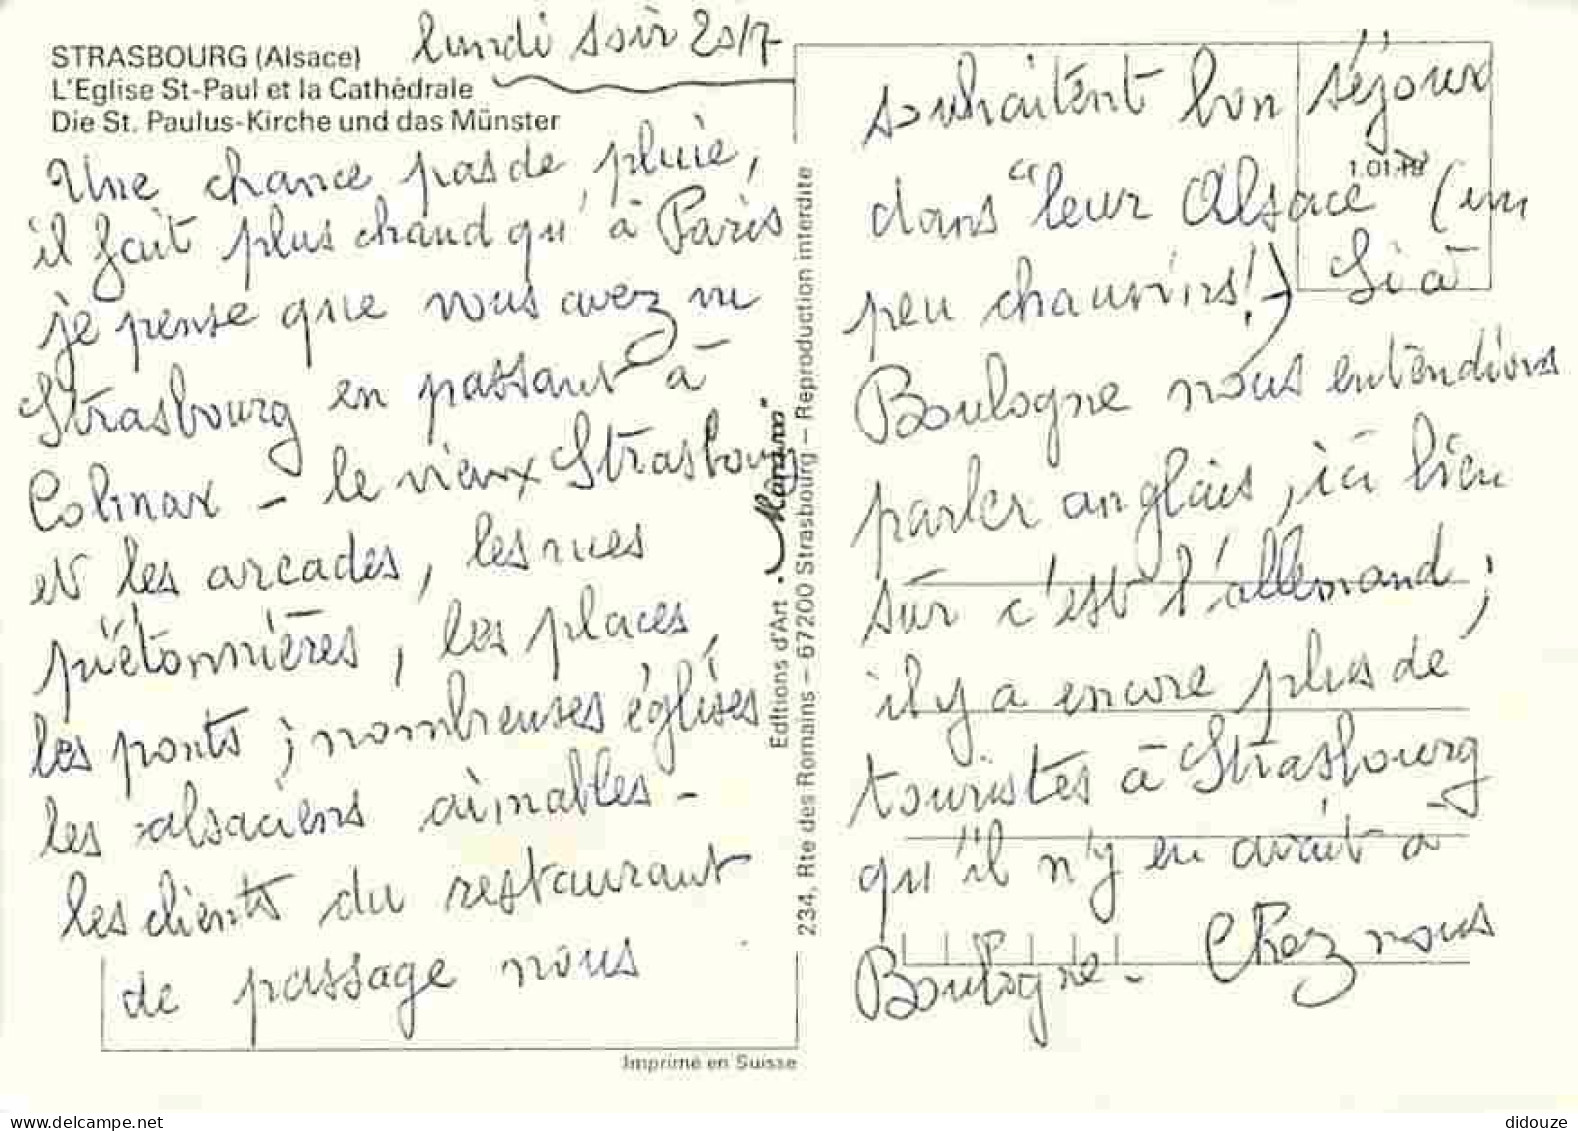 lundi soir 20/7
STRASBOURG (Alsace)
L'Eglise St-Paul et la Cathédrale
Die St. Paulus-Kirche und das Münster
Une chance pas de pluie,
il fait plus chaud qu'à Paris
je pense que vous avez vu
Strasbourg en passant à
Colmar - le vieux Strasbourg
et les arcades, les rues
piétonnières, les places,
les ponts ; nombreuses églises
les alsaciens aimables -
les clients du restaurant
de passage nous
Imprimé en Suisse
Editions d'Art · "Mananni"
234, Rte des Romains – 67200 Strasbourg – Reproduction interdite
souhaitent bon séjour
1.01.18
dans "leur Alsace" (un
peu chauvins!) Si à
Boulogne nous entendions
parler anglais, ici bien
sûr c'est l'allemand ;
il y a encore plus de
touristes à Strasbourg
qu'il n'y en avait à
Boulogne - Chez nous
www.delcampe.net
didouze